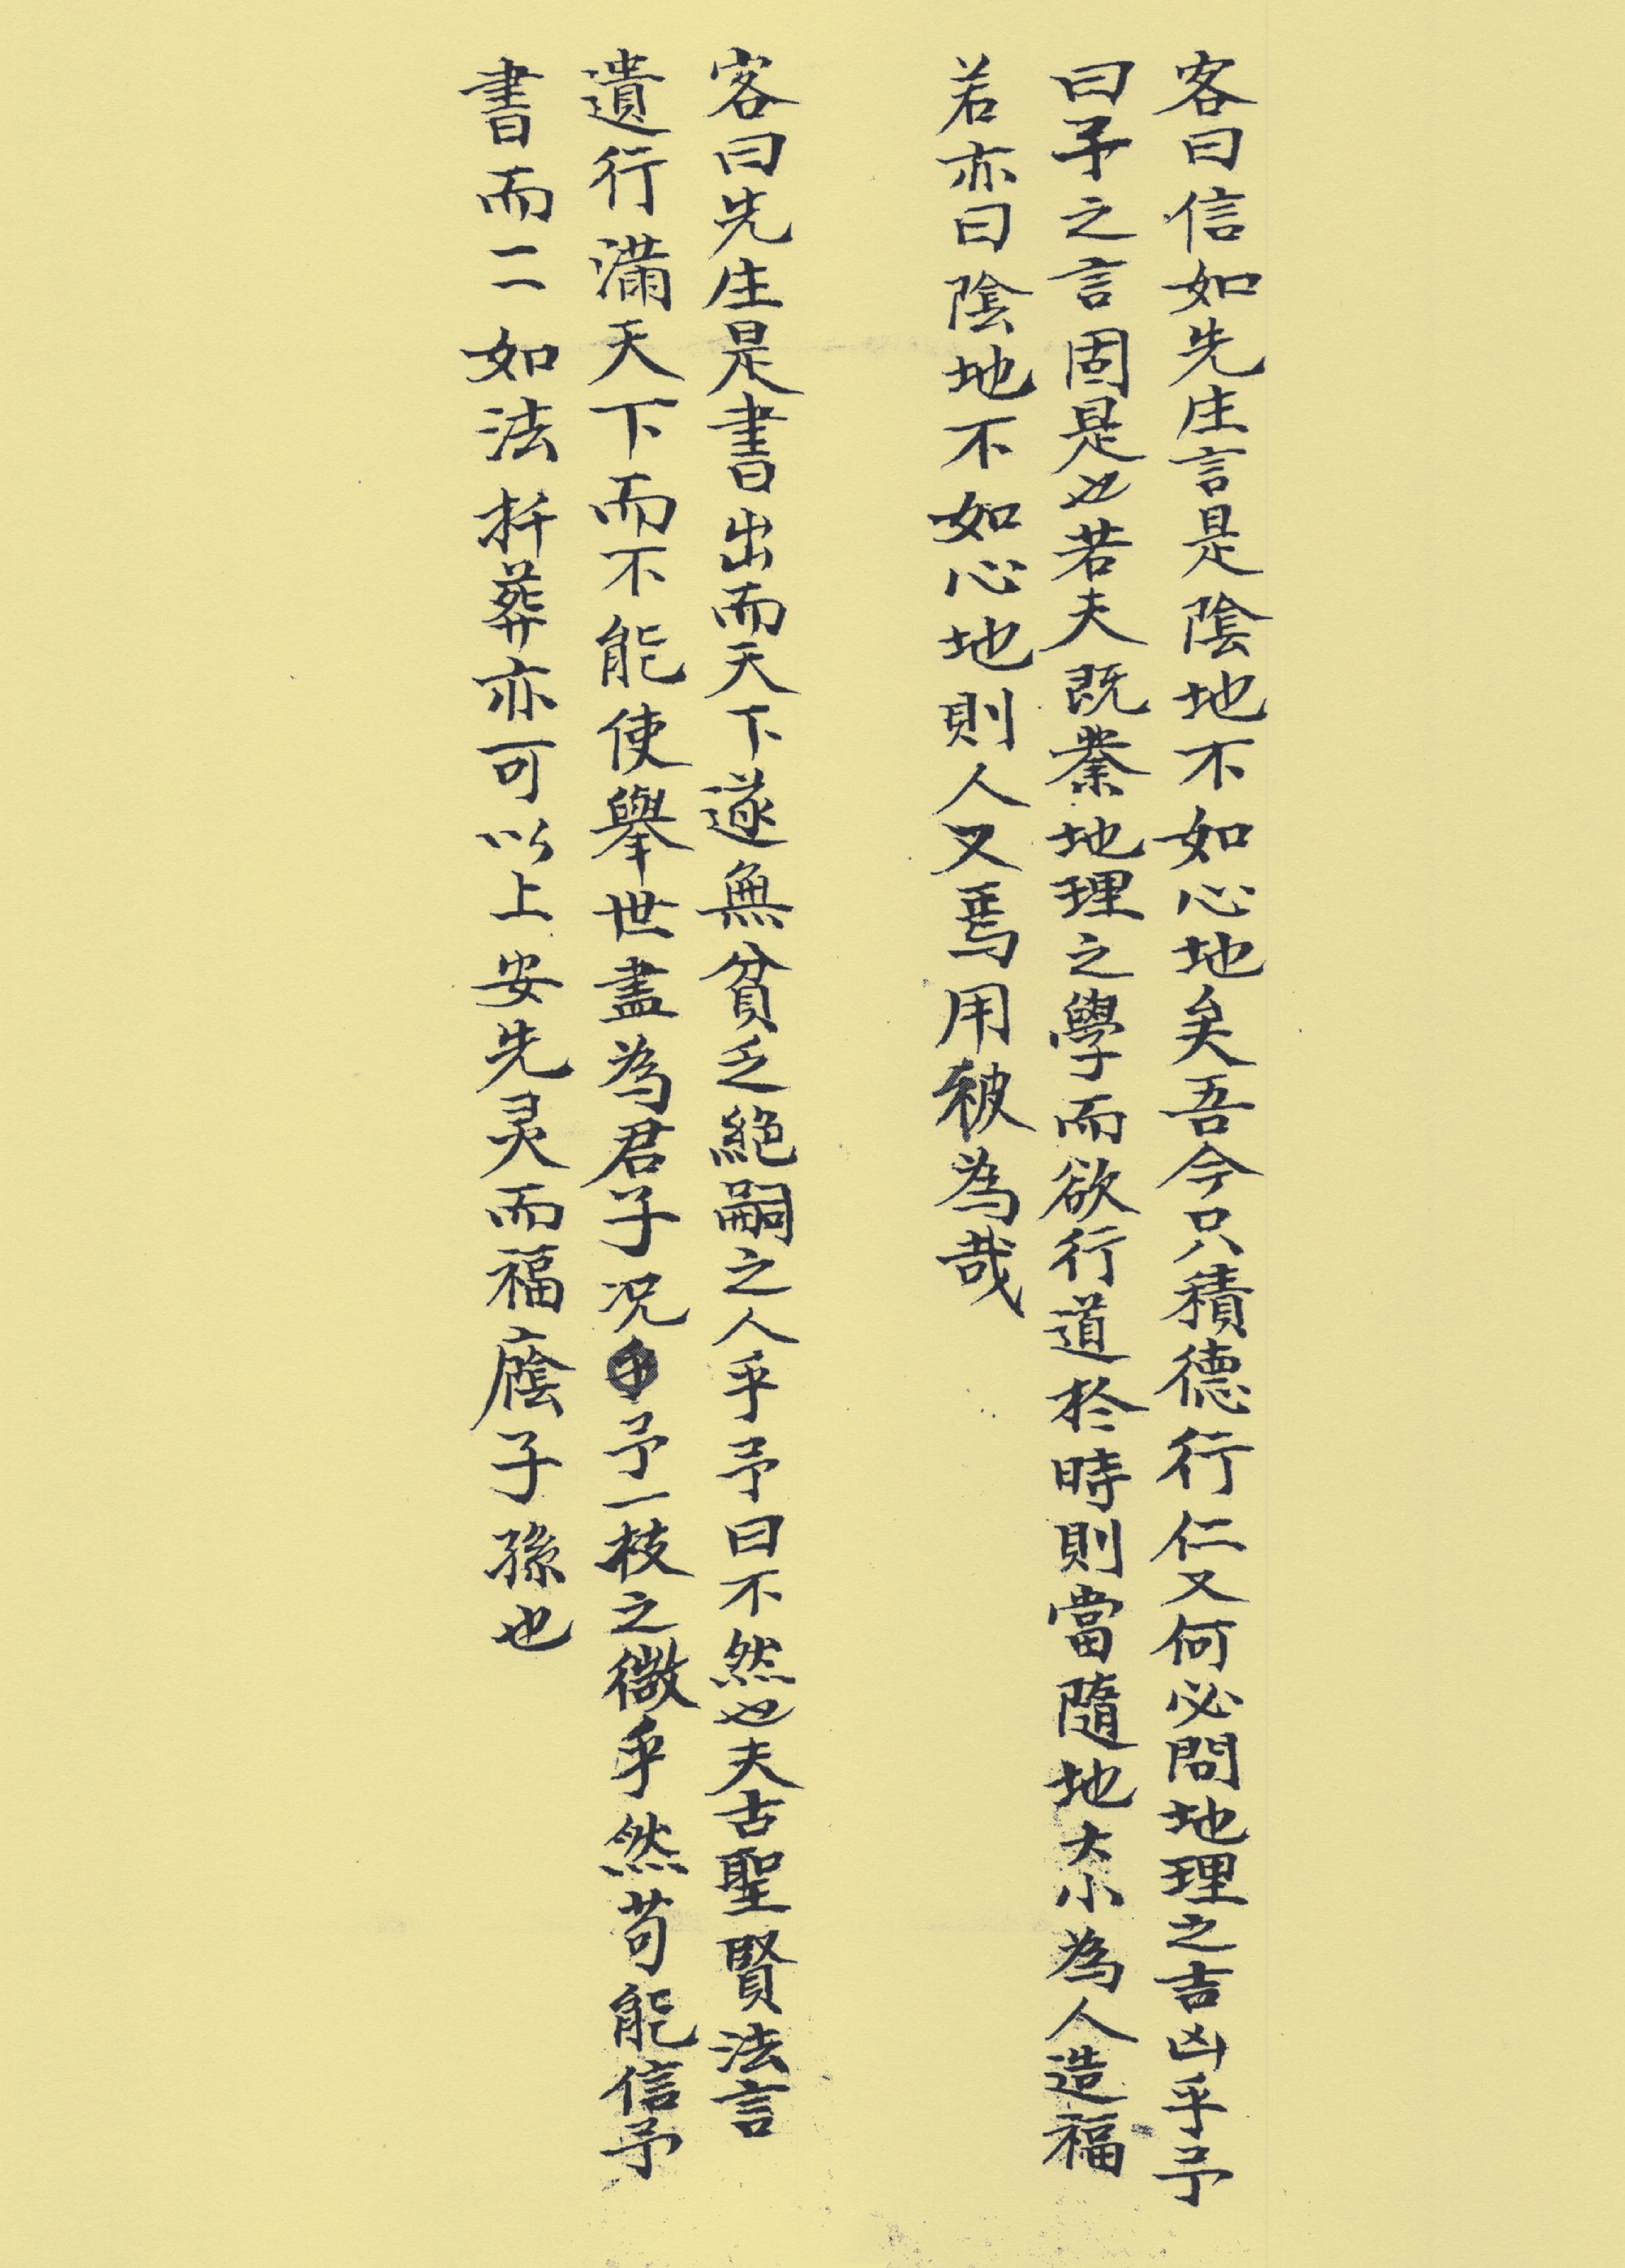 客曰信如先生言是陰地不如心地矣吾今只積德行仁又何必問地理之吉凶乎予
曰予之言固是也若夫既業地理之學而欲行道於時則當隨地大小為人造福
若亦曰陰地不如心地則人又焉用被為哉
客曰先生是書出而天下遂無貧乏絕嗣之人乎予曰不然也夫古聖賢法言
遺行滿天下而不能使舉世盡為君子况予一枝之微乎然苟能信予
書而一二如法扦葬亦可以上安先灵而福廕子孫也